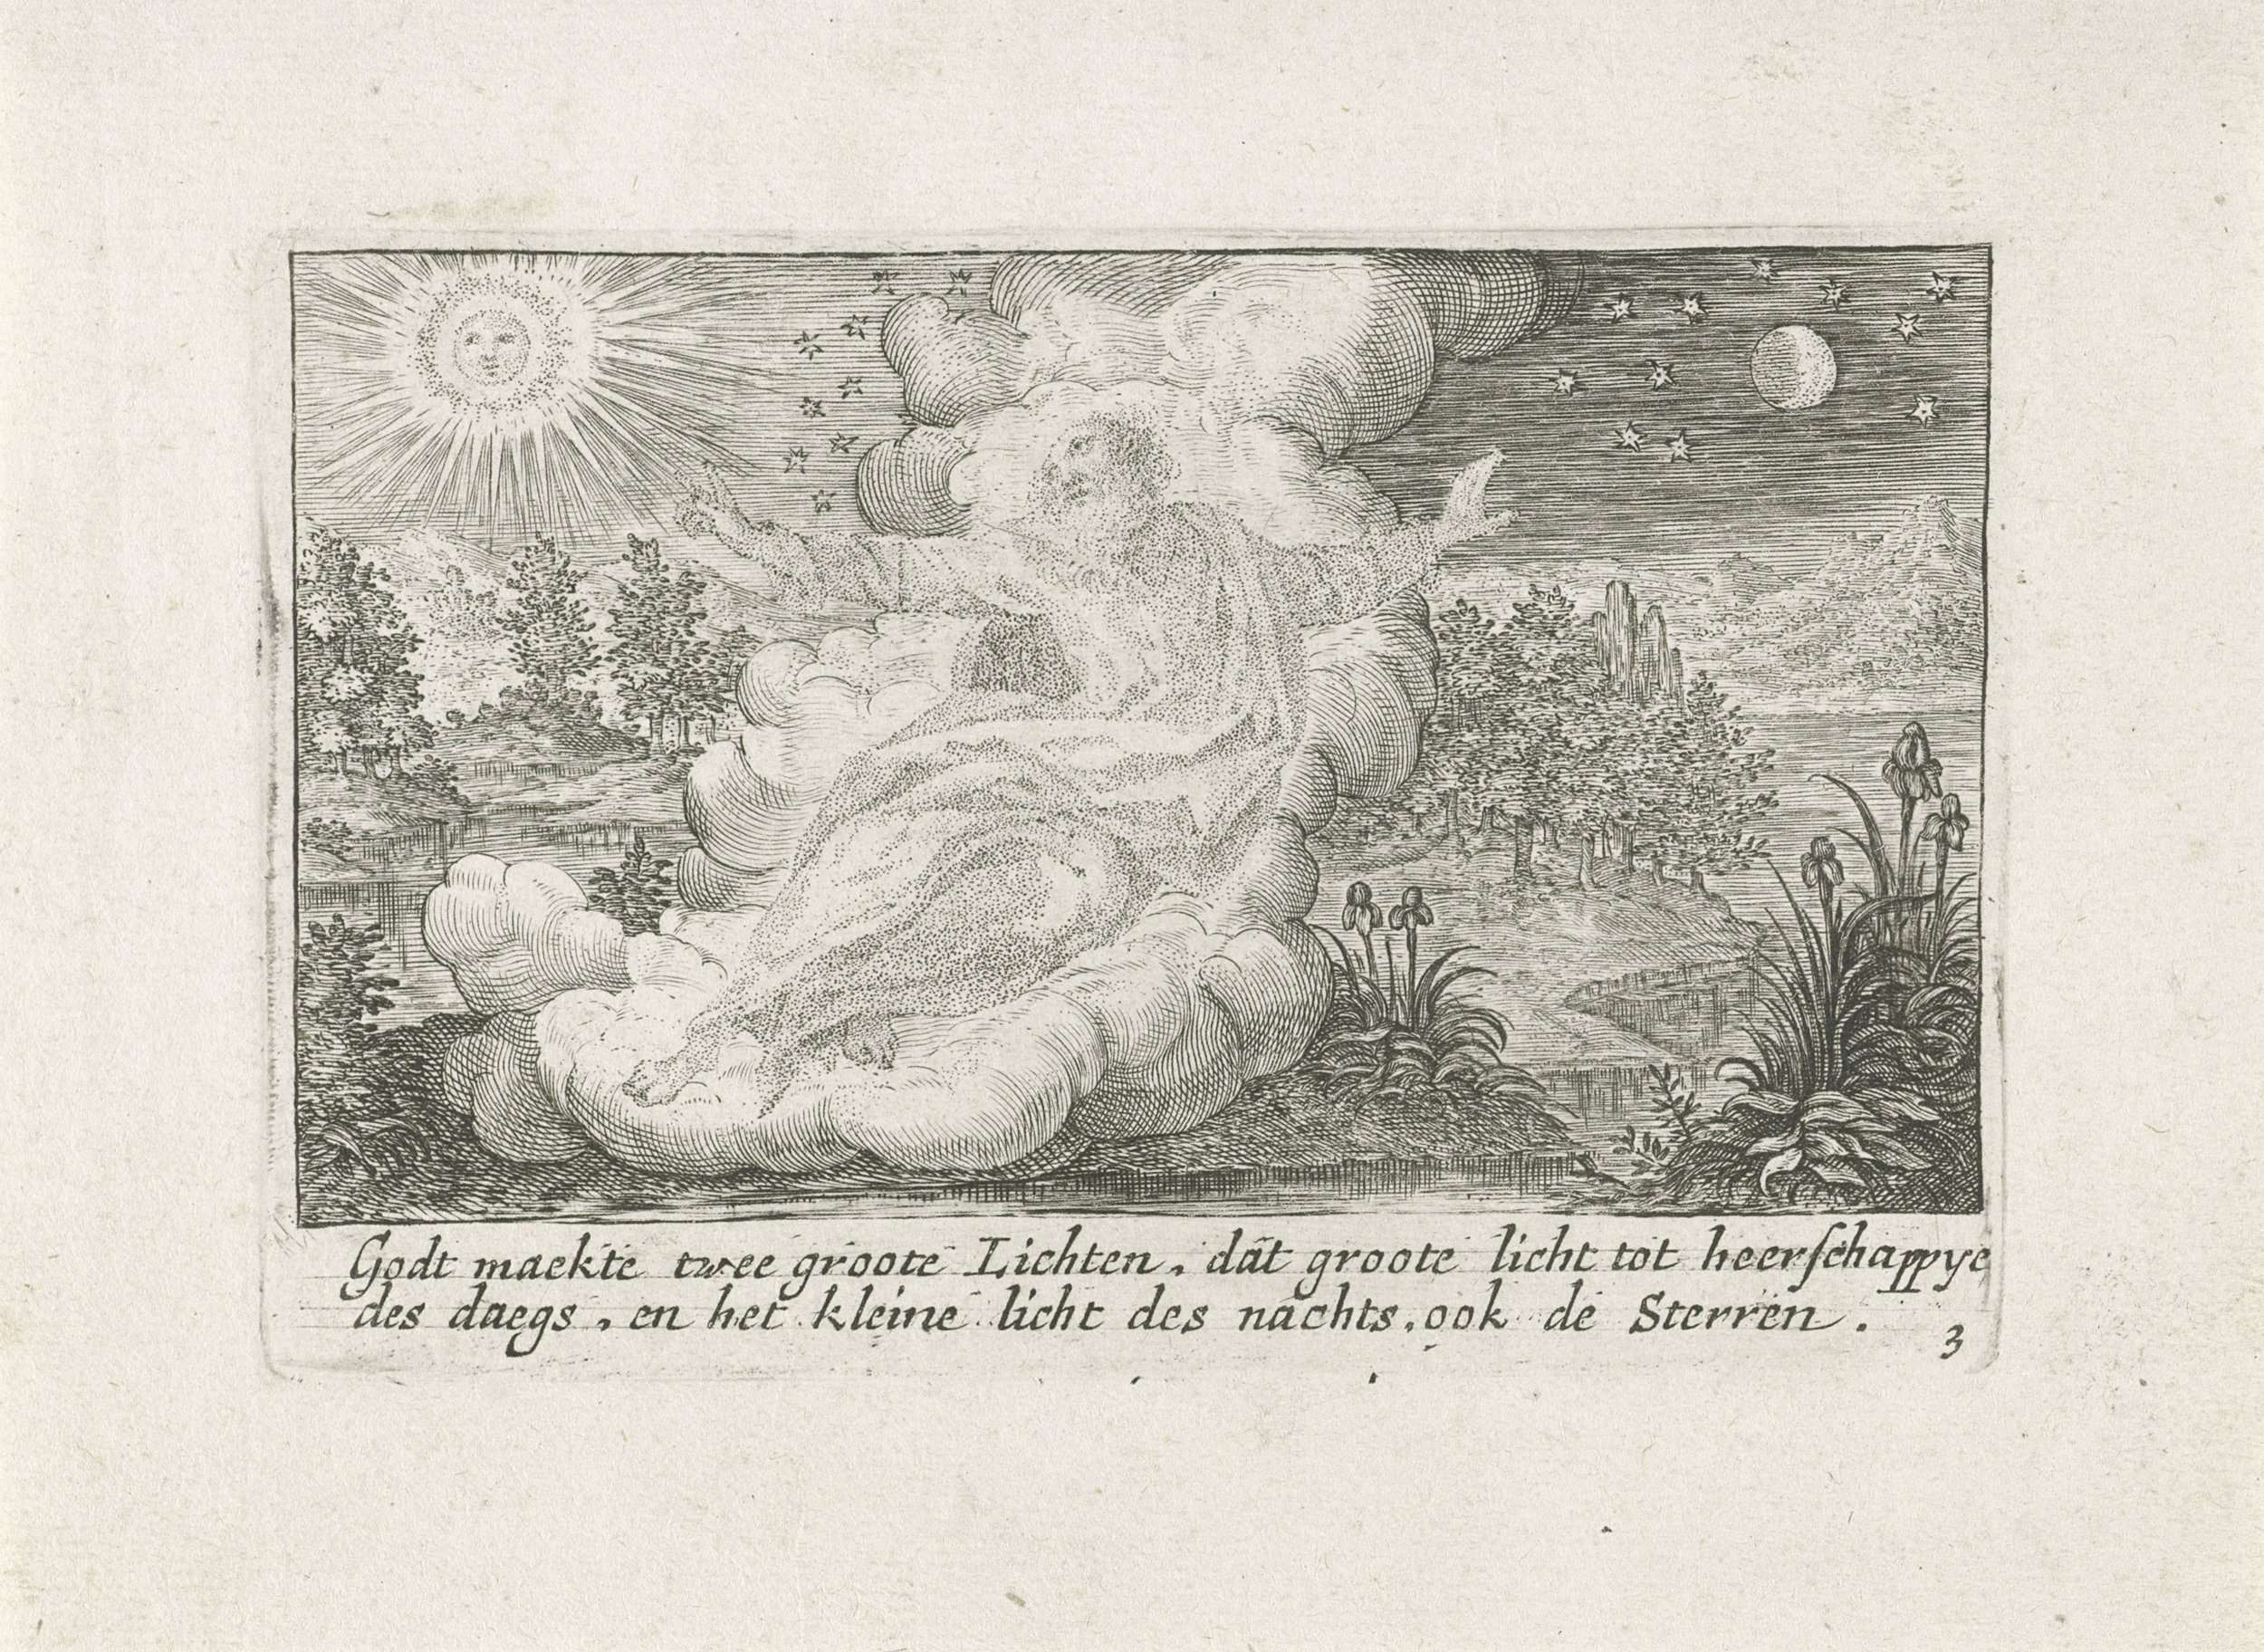 Godt maekte twee groote Lichten, dat groote licht tot heerſchappye
des daegs, en het kleine licht des nachts, ook de Sterren.
3